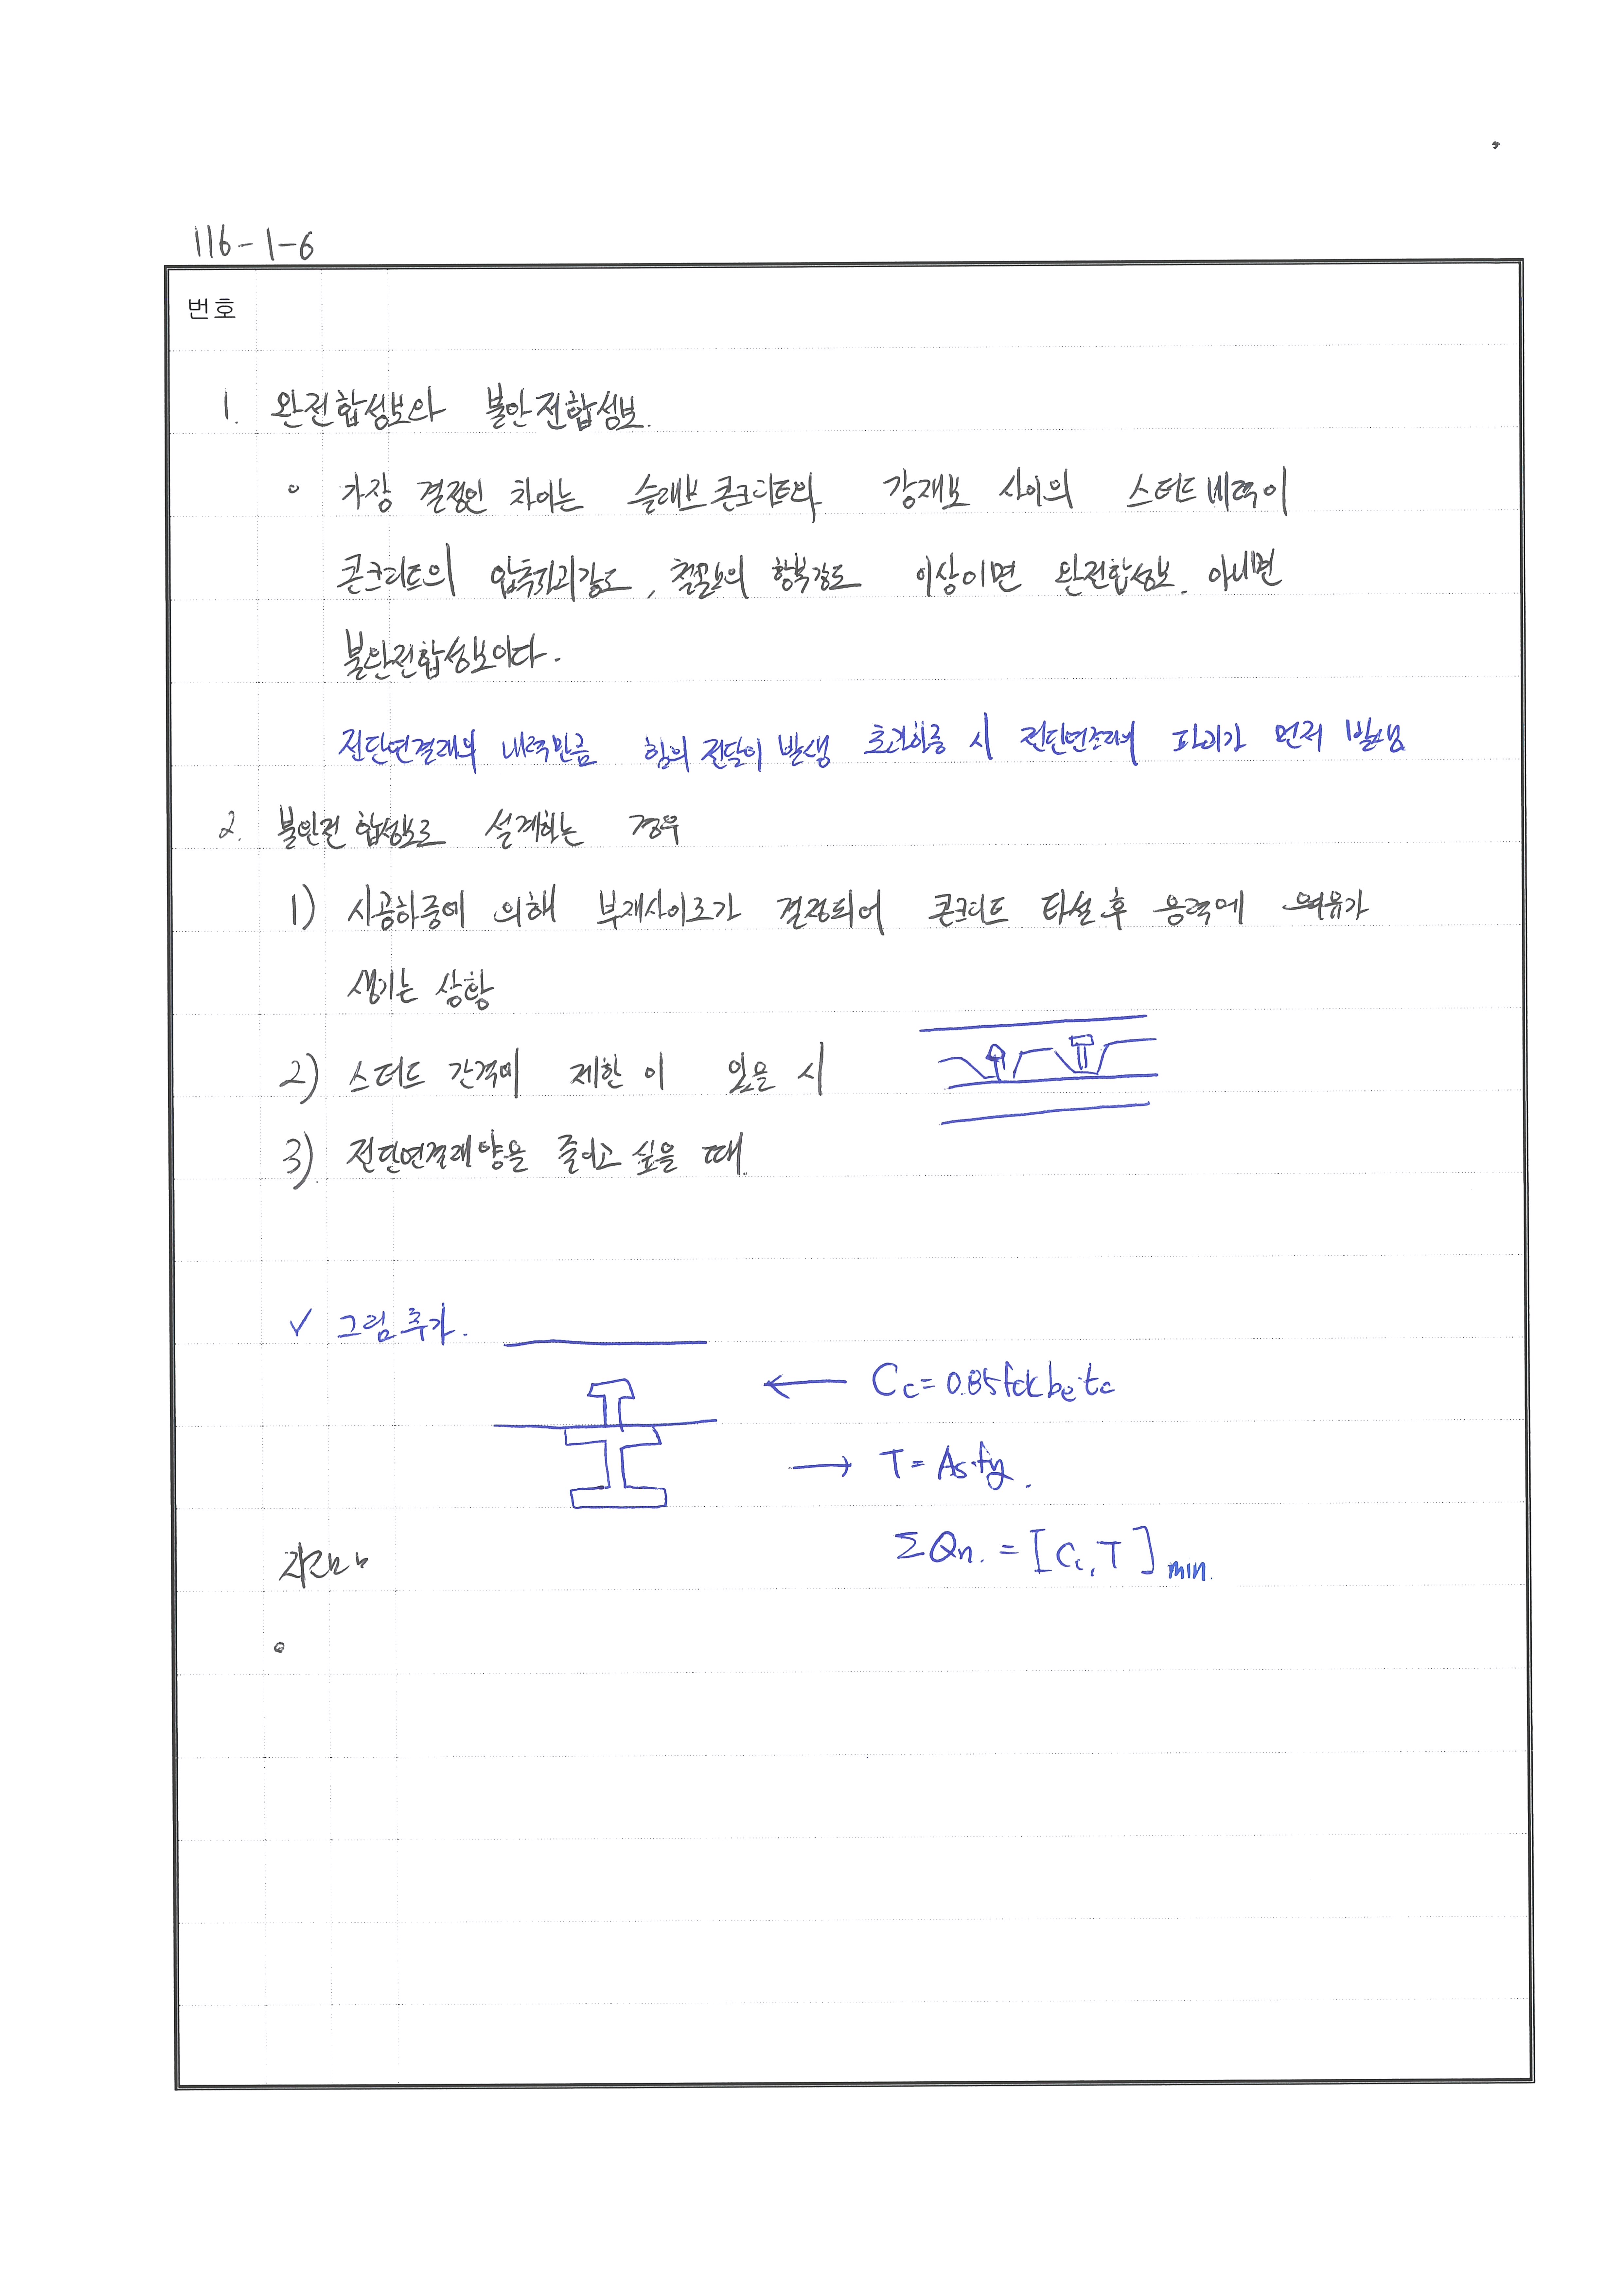 116-1-6
번호
1. 완전합성보와 불완전합성보.
∘ 가장 결정인 차이는 슬래브콘크리트와 강재보 사이의 스터드내력이
콘크리트의 압축파괴강도, 철골보의 항복강도 이상이면 완전합성보. 아니면
불완전합성보이다.
전단연결재의 내력만큼 힘의 전달이 발생 초과하중 시 전단연결재의 파괴가 먼저 발생
2. 불완전 합성보로 설계하는 경우
1) 시공하중에 의해 부재사이즈가 결정되어 콘크리트 타설후 응력에 여유가
생기는 상황
2) 스터드 간격에 제한이 있을 시
3) 전단연결재양을 줄이고 싶을 때.
✓ 그림추가.
← Cc = 0.85 fck be tc
→ T = As·fy.
ΣQn. = [Cc, T] min.